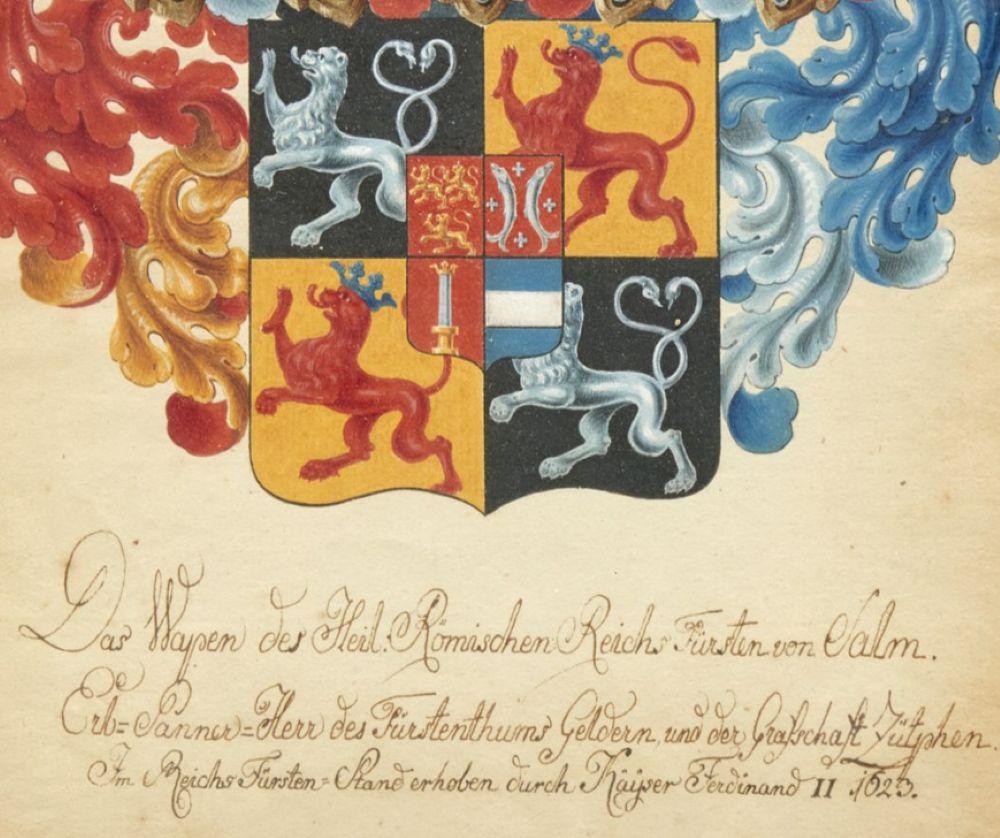 Das Wapen des Heil: Römischen Reichs Fürsten von Salm.
Erb=Panner=Herr des Fürstenthums Geldern, und der Grafschaft Zütphen.
Im Reichs Fürsten=Stand erhoben durch Käyser Ferdinand II 1623.